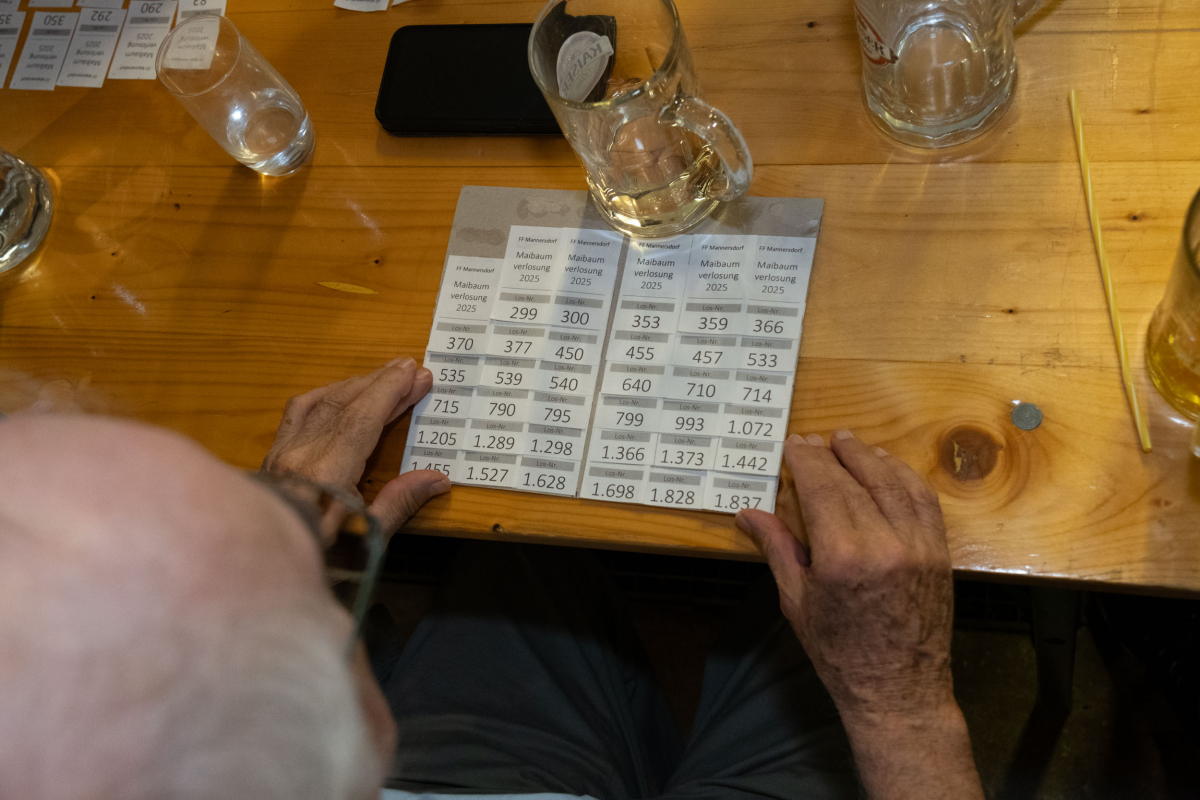 290
292
350
Maibaum
verlosung
2025
FF Mannersdorf
KAISER
FF Mannersdorf FF Mannersdorf FF Mannersdorf FF Mannersdorf FF Mannersdorf
Maibaum Maibaum Maibaum Maibaum Maibaum
verlosung verlosung verlosung verlosung verlosung
2025 2025 2025 2025 2025
FF Mannersdorf
Maibaum
verlosung
2025
Los-Nr. Los-Nr. Los-Nr. Los-Nr. Los-Nr.
299 300 353 359 366
Los-Nr. Los-Nr. Los-Nr. Los-Nr. Los-Nr. Los-Nr.
370 377 450 455 457 533
Los-Nr. Los-Nr. Los-Nr. Los-Nr. Los-Nr. Los-Nr.
535 539 540 640 710 714
Los-Nr. Los-Nr. Los-Nr. Los-Nr. Los-Nr. Los-Nr.
715 790 795 799 993 1.072
Los-Nr. Los-Nr. Los-Nr. Los-Nr. Los-Nr. Los-Nr.
1.205 1.289 1.298 1.366 1.373 1.442
Los-Nr. Los-Nr. Los-Nr. Los-Nr. Los-Nr. Los-Nr.
1.455 1.527 1.628 1.698 1.828 1.837